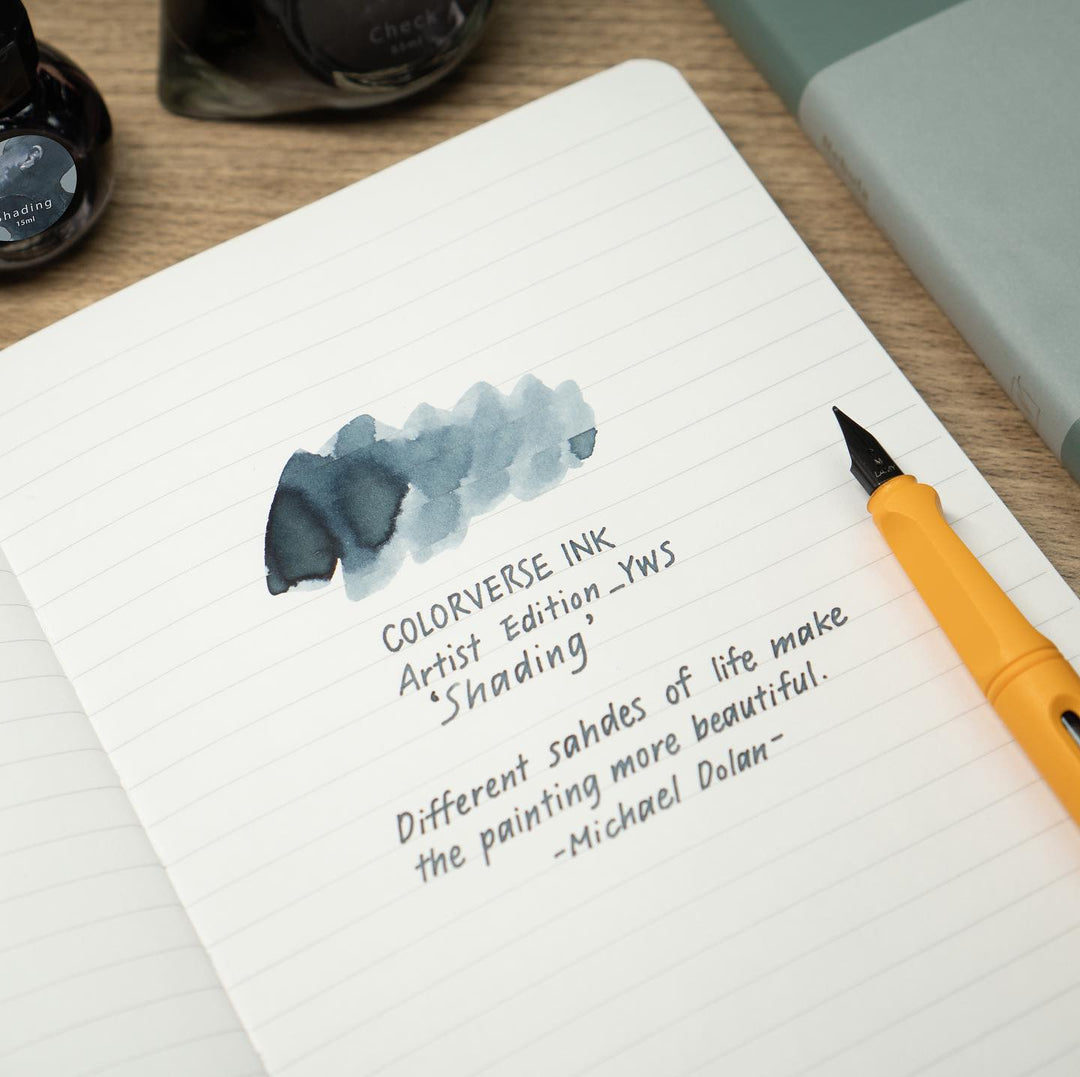 Check
65ml
Shading
15ml
COLORVERSE INK
Artist Edition_YWS
'Shading'
Different sahdes of life make
the painting more beautiful.
-Michael Dolan-